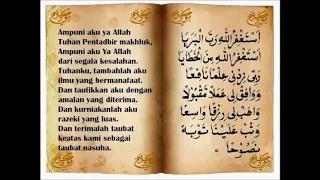 Ampuni aku ya Allah
Tuhan Pentadbir makhluk,
Ampuni aku Ya Allah
dari segala kesalahan.
Tuhanku, tambahlah aku
ilmu yang bermanafaat.
Dan taufikkan aku dengan
amalan yang diterima.
Dan kurniakanlah aku
razeki yang luas.
Dan terimalah taubat
keatas kami sebagai
taubat nasuha.
اَسْتَغْفِرُ اللهَ رَبَّ الْبَرَايَا
اَسْتَغْفِرُ اللهَ مِنَ الْخَطَايَا
رَبِّي زِدْنِي عِلْمًا نَافِعًا
وَوَفِّقْنِي عَمَلاً مَقْبُوْلاً
وَهَبْ لِي رِزْقًا وَاسِعًا
وَتُبْ عَلَيْنَا تَوْبَةً
نَصُوْحًا